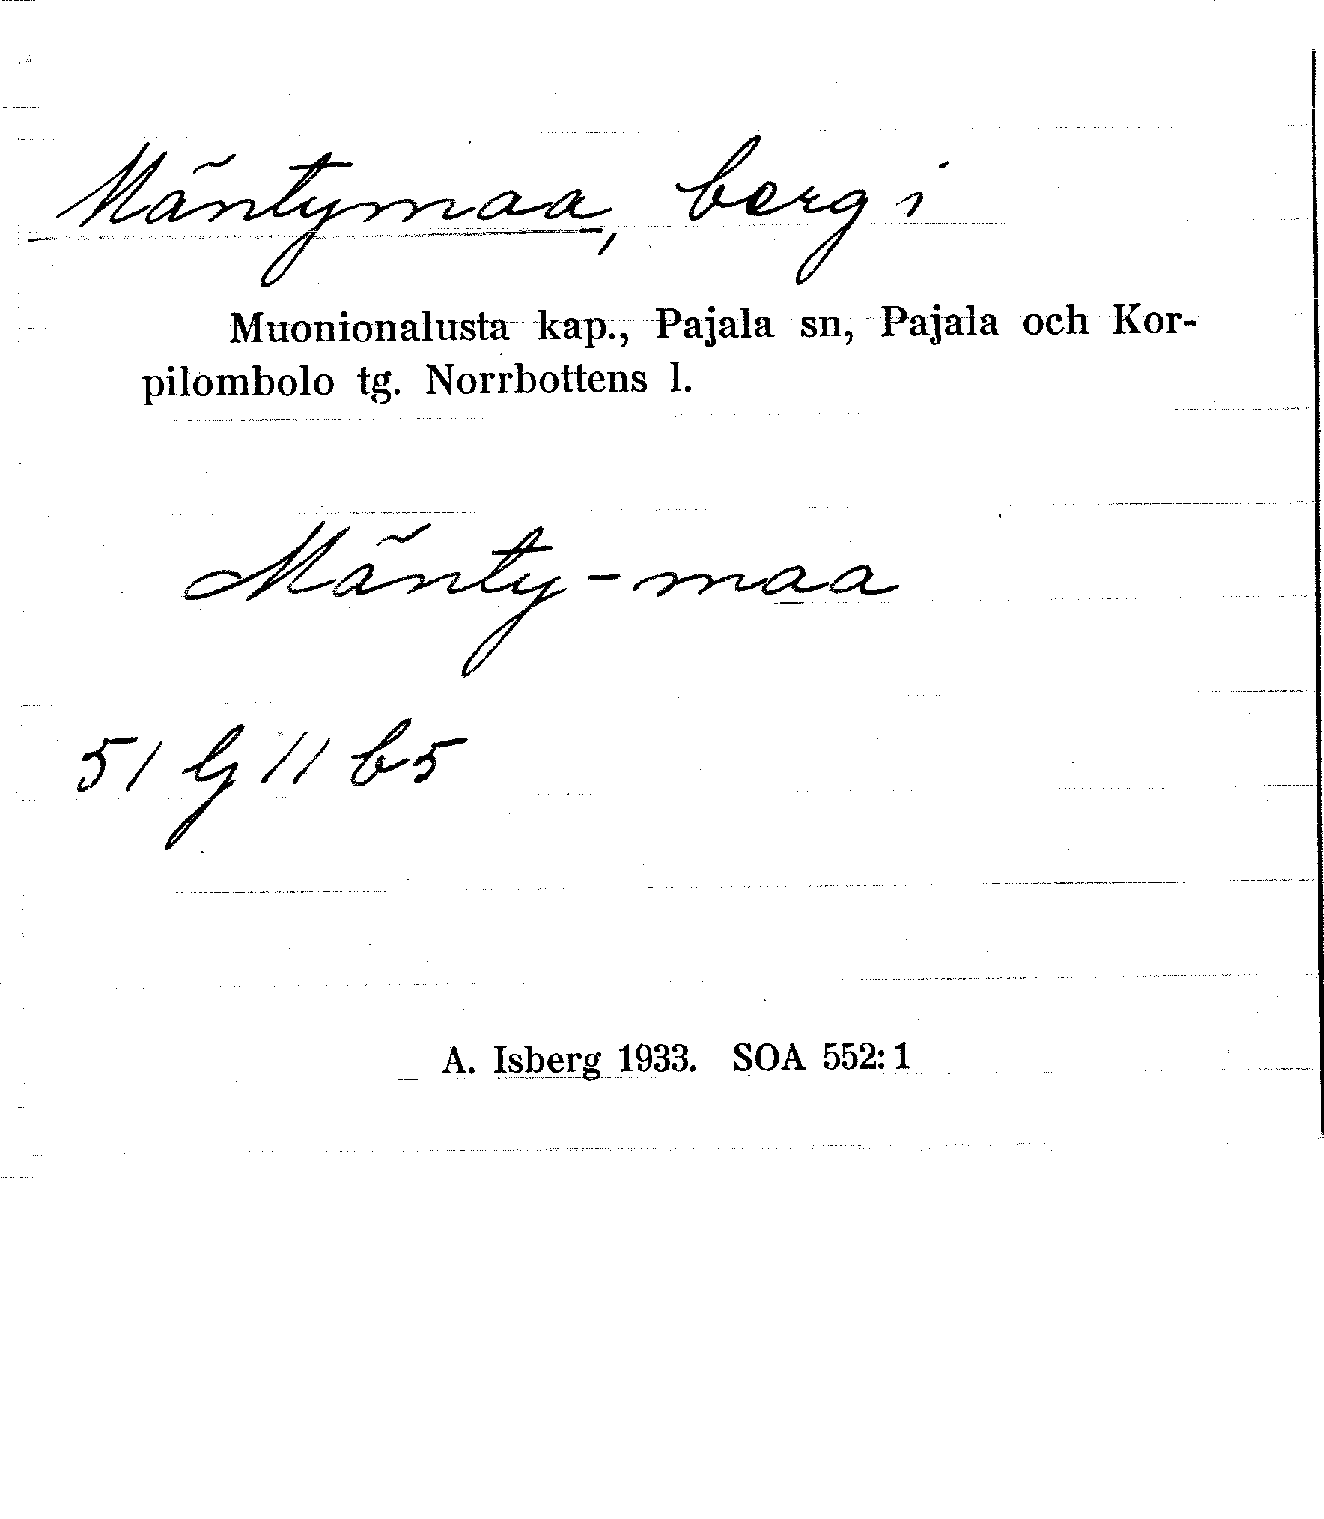 Mäntymaa, berg i
Muonionalusta kap., Pajala sn, Pajala och Kor-
pilombolo tg. Norrbottens l.
Mänty-maa
51 G 11 b5
A. Isberg 1933. SOA 552: 1